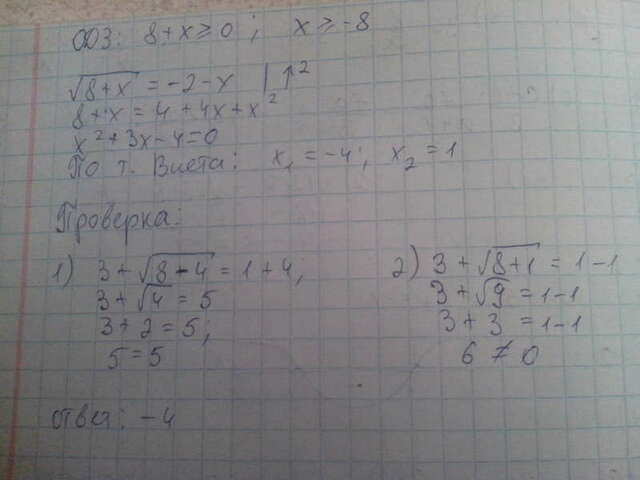 ОДЗ: 8+x≥0; x≥-8
√8+x = -2-x | ↑²
8+x = 4+4x+x²
x²+3x-4=0
По т. Виета: x₁=-4; x₂=1
Проверка:
1) 3+√8-4 = 1+4;
3+√4 = 5
3+2=5;
5=5
2) 3+√8+1 = 1-1
3+√9 = 1-1
3+3 = 1-1
6≠0
ответ: -4